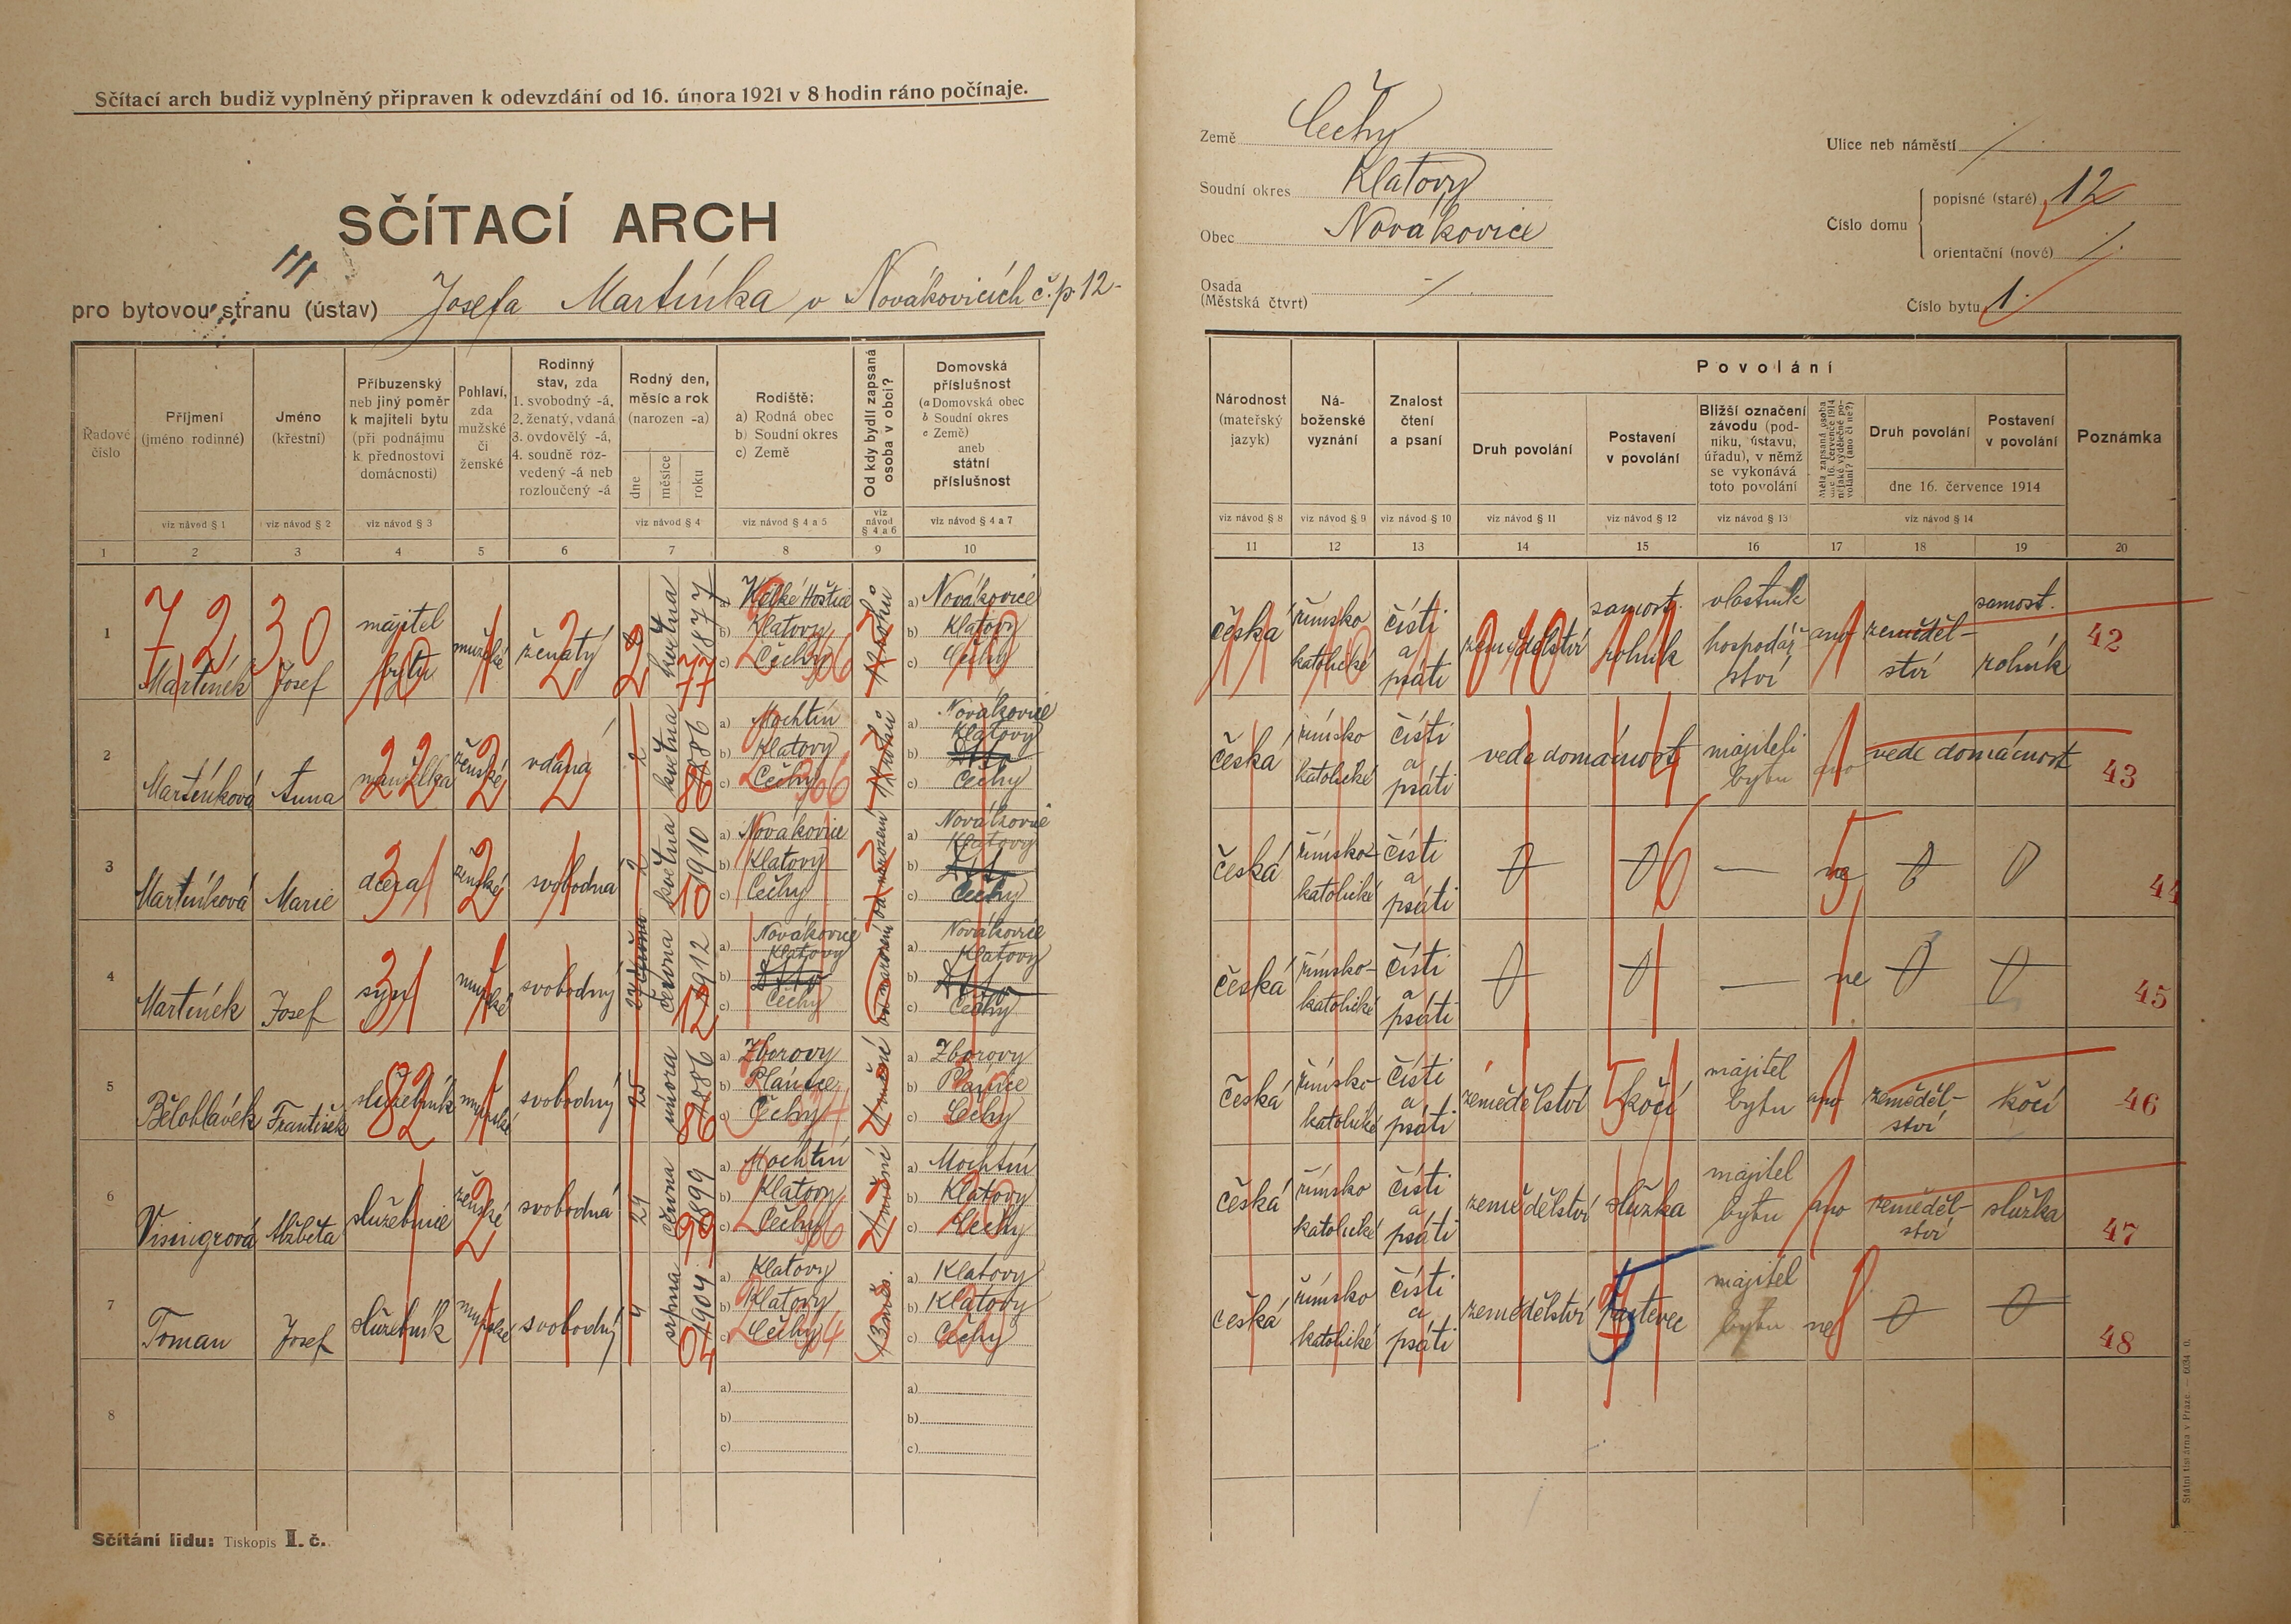 Sčítací arch budiž vyplněný připraven k odevzdání od 16. února 1921 v 8 hodin ráno počínaje.
SČÍTACÍ ARCH
pro bytovou stranu (ústav) Josefa Martínka v Novákovicích č.p. 12-
Země Čechy
Soudní okres Klatovy
Obec Novákovice
Osada
(Městská čtvrt)
Ulice neb náměstí
Číslo domu
popisné (staré) 12
orientační (nové)
Číslo bytu 1.
Řadové číslo
Příjmení (jméno rodinné) viz návod § 1
Jméno (křestní) viz návod § 2
Příbuzenský neb jiný poměr k majiteli bytu (při podnájmu k přednostovi domácnosti) viz návod § 3
Pohlaví, zda mužské či ženské
Rodinný stav, zda 1. svobodný -á, 2. ženatý, vdaná 3. ovdovělý -á, 4. soudně rozvedený -á neb rozloučený -á
Rodný den, měsíc a rok (narozen -a) dne měsíce roku viz návod § 4
Rodiště: a) Rodná obec b) Soudní okres c) Země viz návod § 4 a 5
Od kdy bydlí zapsaná osoba v obci? viz návod § 4 a 6
Domovská příslušnost (a Domovská obec b Soudní okres c Země) aneb státní příslušnost viz návod § 4 a 7
Národnost (mateřský jazyk) viz návod § 8
Náboženské vyznání viz návod § 9
Znalost čtení a psaní viz návod § 10
Povolání
Druh povolání viz návod § 11
Postavení v povolání viz návod § 12
Bližší označení závodu (podniku, ústavu, úřadu), v němž se vykonává toto povolání viz návod § 13
Měla zapsaná osoba dne 16. července 1914 nějaké výdělečné povolání? (ano či ne?)
Druh povolání
Postavení v povolání
dne 16. července 1914
viz návod § 14
Poznámka
1 2 3 4 5 6 7 8 9 10 11 12 13 14 15 16 17 18 19 20
1 Martínek Josef majitel bytu mužské ženatý 2 května 1877 a) Velké Hoštice b) Klatovy c) Čechy a) Novákovice b) Klatovy c) Čechy česká římsko katolické čísti a psáti zemědělství samost. rolník vlastník hospodářství ano zemědělství samost. rolník 42
2 Martínková Anna manželka ženské vdaná 2 května 1886 a) Mochtín b) Klatovy c) Čechy a) Novákovice b) Klatovy c) Čechy česká římsko katolické čísti a psáti vede domácnost majiteli bytu ano vede domácnost 43
3 Martínková Marie dcera ženské svobodná 2 května 1910 a) Novákovice b) Klatovy c) Čechy od narození a) Novákovice b) Klatovy c) Čechy česká římsko- katolické čísti a psáti 0 0 — ne 0 0 44
4 Martínek Josef syn mužské svobodný června 1912 a) Novákovice b) Klatovy c) Čechy od narození a) Novákovice b) Klatovy c) Čechy česká římsko- katolické čísti a psáti 0 0 — ne 0 0 45
5 Bělohlávek František služebník mužské svobodný 25 února 1886 a) Zborovy b) Plánice c) Čechy a) Zborovy b) Plánice c) Čechy česká římsko- katolické čísti a psáti zemědělství kočí majitel bytu ano zemědělství kočí 46
6 Visingrová Alžběta služebnice ženské svobodná 29 června 1899 a) Mochtín b) Klatovy c) Čechy a) Mochtín b) Klatovy c) Čechy česká římsko katolické čísti a psáti zemědělství služka majitel bytu ano zemědělství služka 47
7 Toman Josef služebník mužské svobodný 4 srpna 1904 a) Klatovy b) Klatovy c) Čechy 13 měs. a) Klatovy b) Klatovy c) Čechy česká římsko katolické čísti a psáti zemědělství majitel bytu ne 0 0 48
8 a) b) c) a) b) c)
Sčítání lidu: Tiskopis I. č.
Státní tiskárna v Praze. — 6034 0.